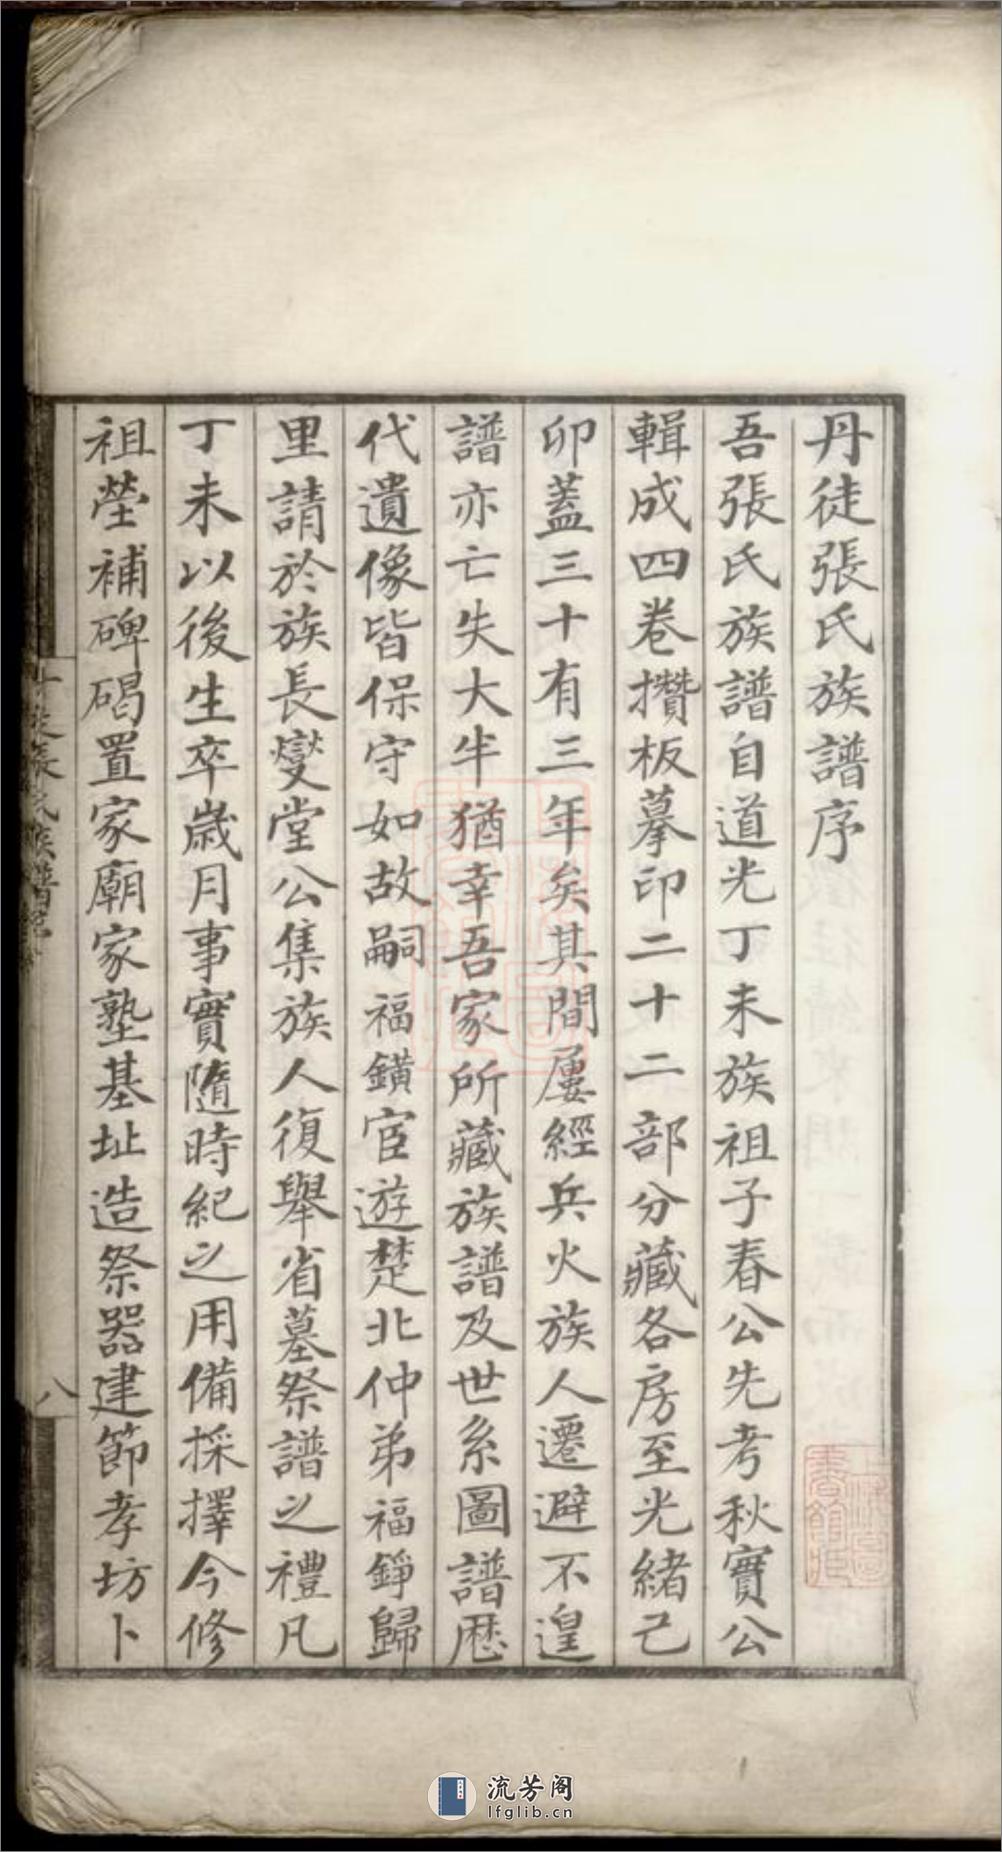 丹徒張氏族譜序
吾張氏族譜自道光丁未族祖子春公先考秋實公
輯成四卷攢板摹印二十二部分藏各房至光緒己
卯蓋三十有三年矣其間屢經兵火族人遷避不遑
譜亦亡失大半猶幸吾家所藏族譜及世系圖譜歷
代遺像皆保守如故嗣福鐄宦遊楚北仲弟福錚歸
里請於族長燮堂公集族人復舉省墓祭譜之禮凡
丁未以後生卒歲月事實隨時紀之用備採擇今修
祖塋補碑碣置家廟家塾基址造祭器建節孝坊卜
八
流芳阁
lfglib.cn